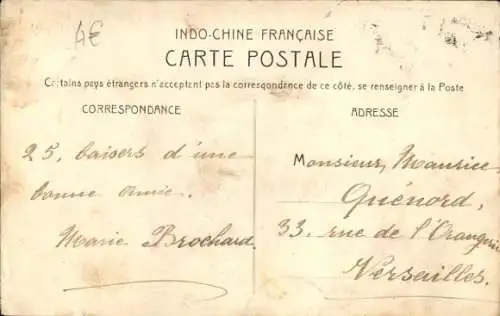 4€
INDO-CHINE FRANÇAISE
CARTE POSTALE
Certains pays étrangers n'acceptent pas la correspondance de ce côté, se renseigner à la Poste
CORRESPONDANCE
ADRESSE
25, baisers d'une
bonne amie.
Marie Brochard.
Monsieur, Maurice
Quénord,
33, rue de l'Orangerie
Versailles.